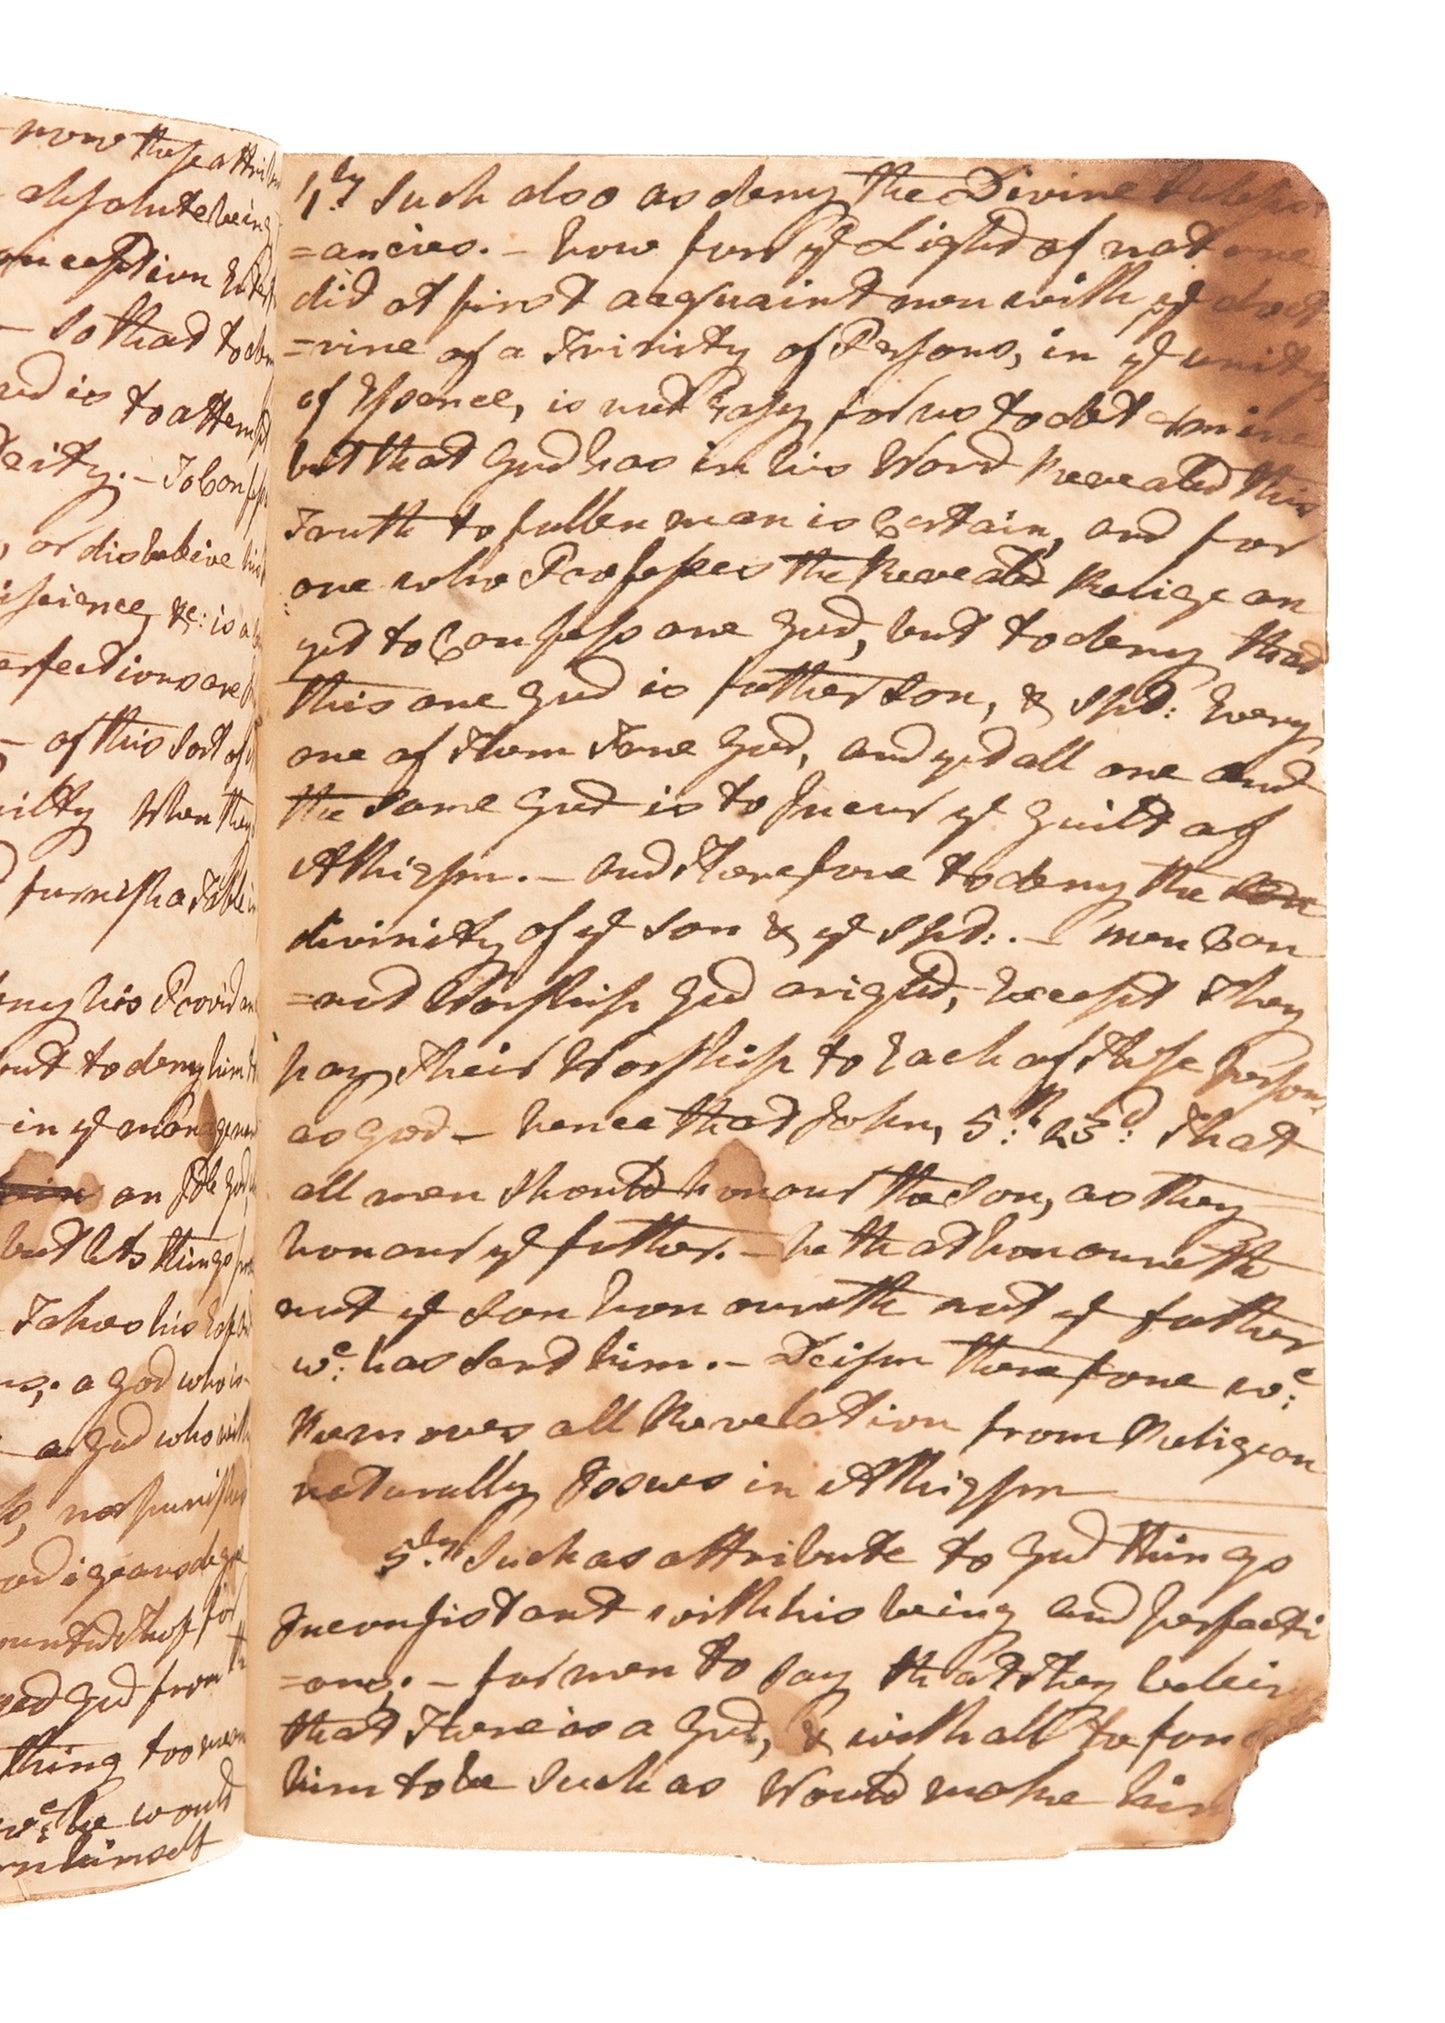 now these attri
absolute being
conception
so that to
is to attem
Deity. – To Confess
, or disbeleive his
&c: is a
erfections are
– of this sort of
uilty When they
furnish a Table
eny his Provid
but to deny him
– in ye manage
an Idle God
but lets things
Takes his
a God who is
a God who
nor punish
from
thing too mean
wc: he would
himself
4ly Such also as deny the Divine Subsist
=ancies. – how far ye Light of nature
did at first acquaint men with ye doct
=rine of a Trinity of Persons, in ye unity
of Essence, is not Easy for us to determine
but that God has in his Word Revealed this
Truth to fallen man is Certain, and for
one who Professes the Revealed Religeon
yet to Confess one God, but to deny that
this one God is father Son, & Spt: Every
one of Them True God, and yet all one and
the same God is to Incur ye Guilt of
Athiesm. – and Therefore to deny the
divinity of ye Son & ye Spt:. – men Can
=not Worship God aright, Except They
pay Their Worship to Each of These Persons
as God – hence that John, 5th: 23d: That
all men should honour the Son, as they
honour ye father. – he that honoureth
not ye Son honoureth not ye father
wc: has sent him. – Deism therefore wc:
Removes all Revelation from Religeon
naturally Issues in Athiesm
5ly Such as attribute to God things
Inconsistant with his being and perfecti
=ons. – for men to say that They beleive
that There is a God, & withall to
him to be Such as Would make him